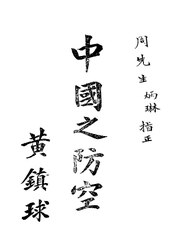 周先生炳琳指正
中國之防空
黃鎮球